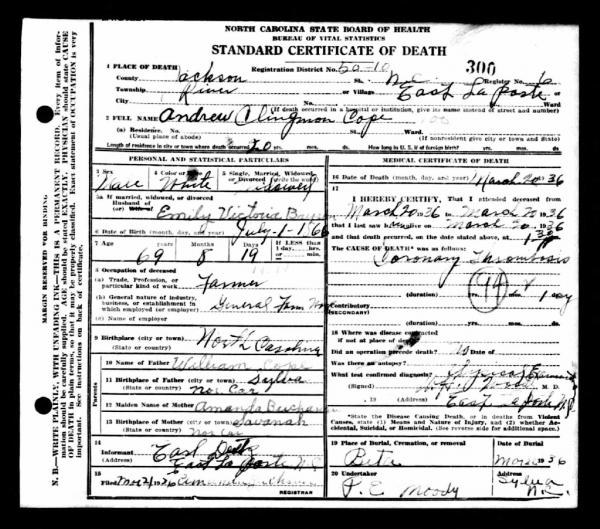 NORTH CAROLINA STATE BOARD OF HEALTH
BUREAU OF VITAL STATISTICS
STANDARD CERTIFICATE OF DEATH
1 PLACE OF DEATH
Registration District No. 50-10
300
County Jackson
Register No.
Township River
or Village East La Porte
City
Ward
(If death occurred in a hospital or institution, give its name instead of street and number)
2 FULL NAME Andrew Clingmon Cope
(a) Residence. No.
Ward
(Usual place of abode)
(If nonresident give city or town and State)
Length of residence in city or town where death occurred
How long in U. S. if of foreign birth?
yrs. mos. ds.
PERSONAL AND STATISTICAL PARTICULARS
3 Sex
4 Color or Race
5 Single, Married, Widowed, or Divorced (write the word)
Male White
5a If married, widowed, or divorced
Husband of
(or) Wife of
Emily Victoria
6 Date of Birth (month, day, and year) July-1-1866
7 Age years months days
If LESS than 1 day
69 8 19
8 Occupation of deceased
(a) Trade, Profession, or particular kind of work Farmer
(b) General nature of industry, business, or establishment in which employed (or employer) General Farm Work
(c) Name of employer
9 Birthplace (city or town) North Carolina
(State or country)
Parents
10 Name of Father William Cope
11 Birthplace of Father (city or town) Sylva
(State or country) Nor Car
12 Maiden Name of Mother Amanda
13 Birthplace of Mother (city or town) Savanah
(State or country) Nor Car
14 Informant
(Address) East La Porte N.C.
15 Filed
REGISTRAR
MEDICAL CERTIFICATE OF DEATH
16 Date of Death (month, day, and year) March 20 1936
17 I HEREBY CERTIFY, That I attended deceased from
March 20 1936 to March 20 1936
that I last saw h alive on March 20 1936
and that death occurred, on the date stated above, at
The CAUSE OF DEATH* was as follows:
Coronary Thrombosis
94
(duration) yrs. mos. 1 day
Contributory
(SECONDARY)
(duration) yrs. mos. ds.
18 Where was disease contracted
if not at place of death?
Did an operation precede death? no
Was there an autopsy?
What test confirmed diagnosis?
(Signed) M. D.
, 19 (Address) East La Porte N.C.
*State the Disease Causing Death, or in deaths from Violent Causes, state (1) Means and Nature of Injury, and (2) whether Accidental, Suicidal, or Homicidal. (See reverse side for additional space.)
19 Place of Burial, Cremation, or removal
Date of Burial
1936
20 Undertaker
Address
P. E. Moody
Sylva N.C.
MARGIN RESERVED FOR BINDING
N. B.—WRITE PLAINLY, WITH UNFADING INK—THIS IS A PERMANENT RECORD. Every item of information should be carefully supplied. AGE should be stated EXACTLY. PHYSICIAN should state CAUSE OF DEATH in plain terms, so that it may be properly classified. Exact statement of OCCUPATION is very important. See instructions on back of certificate.